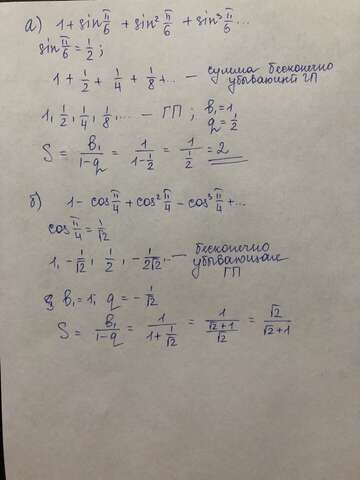 а) 1 + sin π/6 + sin² π/6 + sin³ π/6 ...
sin π/6 = 1/2 ;
1 + 1/2 + 1/4 + 1/8 + ... — сумма бесконечно
убывающей ГП
1, 1/2, 1/4, 1/8, ... — ГП ; b₁ = 1
q = 1/2
S = b₁/(1-q) = 1/(1-1/2) = 1/(1/2) = 2
б) 1 - cos π/4 + cos² π/4 - cos³ π/4 + ...
cos π/4 = 1/√2
1, -1/√2, 1/2, -1/(2√2) .. — бесконечно
убывающая
ГП
b₁ = 1; q = -1/√2
S = b₁/(1-q) = 1/(1+1/√2) = 1/((√2+1)/√2) = √2/(√2+1)